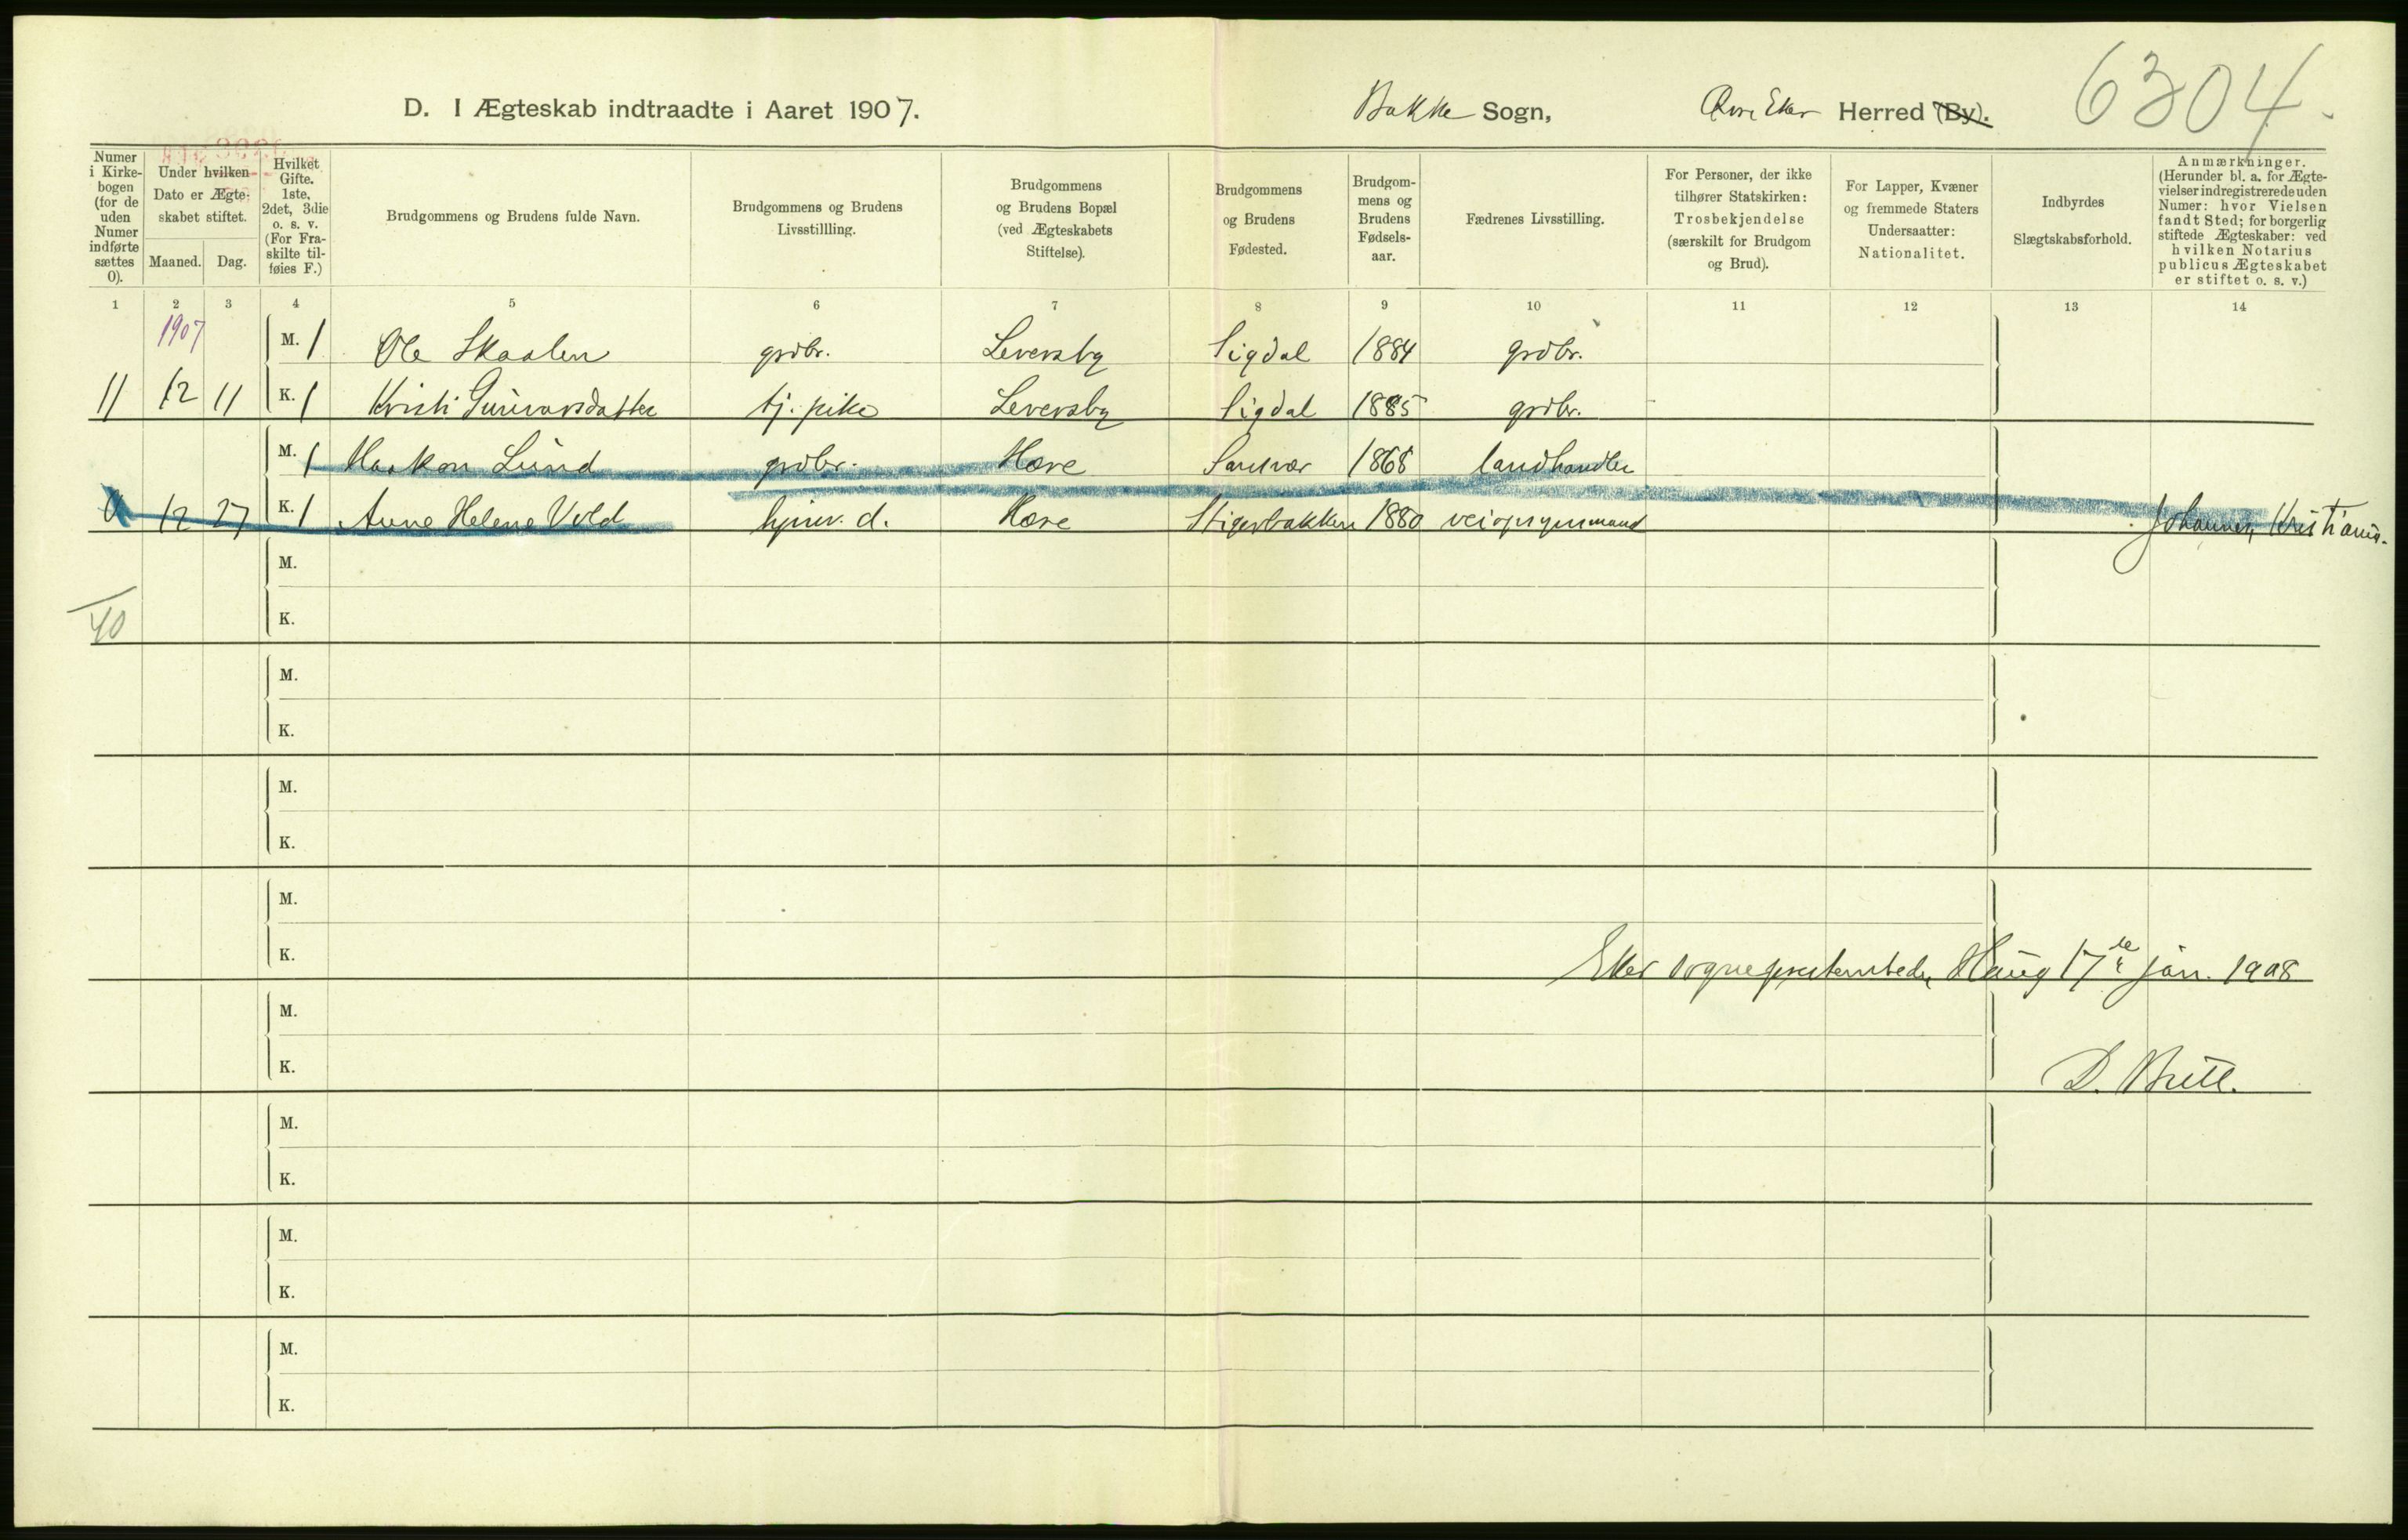 6304.
D. I Ægteskab indtraadte i Aaret 1907. Bakke Sogn, Øvre Eker Herred (By).
Numer i Kirkebogen (for de uden Numer indførte sættes 0).
Under hvilken Dato er Ægteskabet stiftet.
Maaned. Dag.
Hvilket Gifte. 1ste, 2det, 3die o. s. v. (For Fraskilte tilføies F.)
Brudgommens og Brudens fulde Navn.
Brudgommens og Brudens Livsstillling.
Brudgommens og Brudens Bopæl (ved Ægteskabets Stiftelse).
Brudgommens og Brudens Fødested.
Brudgommens og Brudens Fødselsaar.
Fædrenes Livsstilling.
For Personer, der ikke tilhører Statskirken: Trosbekjendelse (særskilt for Brudgom og Brud).
For Lapper, Kvæner og fremmede Staters Undersaatter: Nationalitet.
Indbyrdes Slægtskabsforhold.
Anmærkninger. (Herunder bl. a. for Ægtevielser indregistrerede uden Numer: hvor Vielsen fandt Sted; for borgerlig stiftede Ægteskaber: ved hvilken Notarius publicus Ægteskabet er stiftet o. s. v.)
1 2 3 4 5 6 7 8 9 10 11 12 13 14
1907
M. 1 Ole Skaalen grdbr. Leversby Sigdal 1884 grdbr.
11 12 11 K. 1 Kristi Gunvorsdatter tj. pike Leversby Sigdal 1885 grdbr.
M. 1 Haakon Lund grdbr. Hære Sandsvær 1868 landhandler
0 12 27 K. 1 Anne Helene Vold hjemv. d. Hære Stigerbakken 1880 veiopsynsmand Johannes, Kristiania.
M.
K.
40
M.
K.
M.
K.
M.
K.
Eker sogneprestembede, Haug 17de jan. 1908
M.
K.
D. Brill.
M.
K.
M.
K.
M.
K.